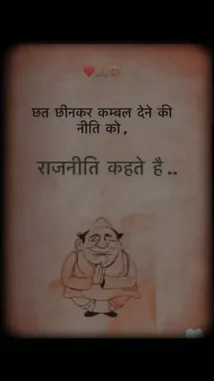 छत छीनकर कम्बल देने की
नीति को,
राजनीति कहते है..